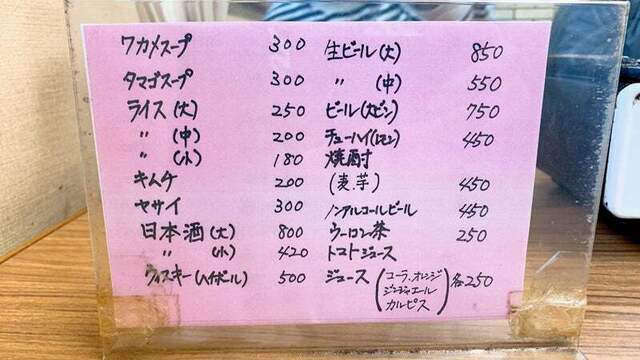 ワカメスープ 300
タマゴスープ 300
ライス(大) 250
〃 (中) 200
〃 (小) 180
キムチ 200
ヤサイ 300
日本酒(大) 800
〃 (小) 420
ウィスキー(ハイボール) 500
生ビール(大) 850
〃 (中) 550
ビール(大ビン) 750
チューハイ(レモン) 450
焼酎
(麦.芋) 450
ノンアルコールビール 450
ウーロン茶 250
トマトジュース
ジュース(コーラ.オレンジ
ジンジャエール
カルピス) 各250